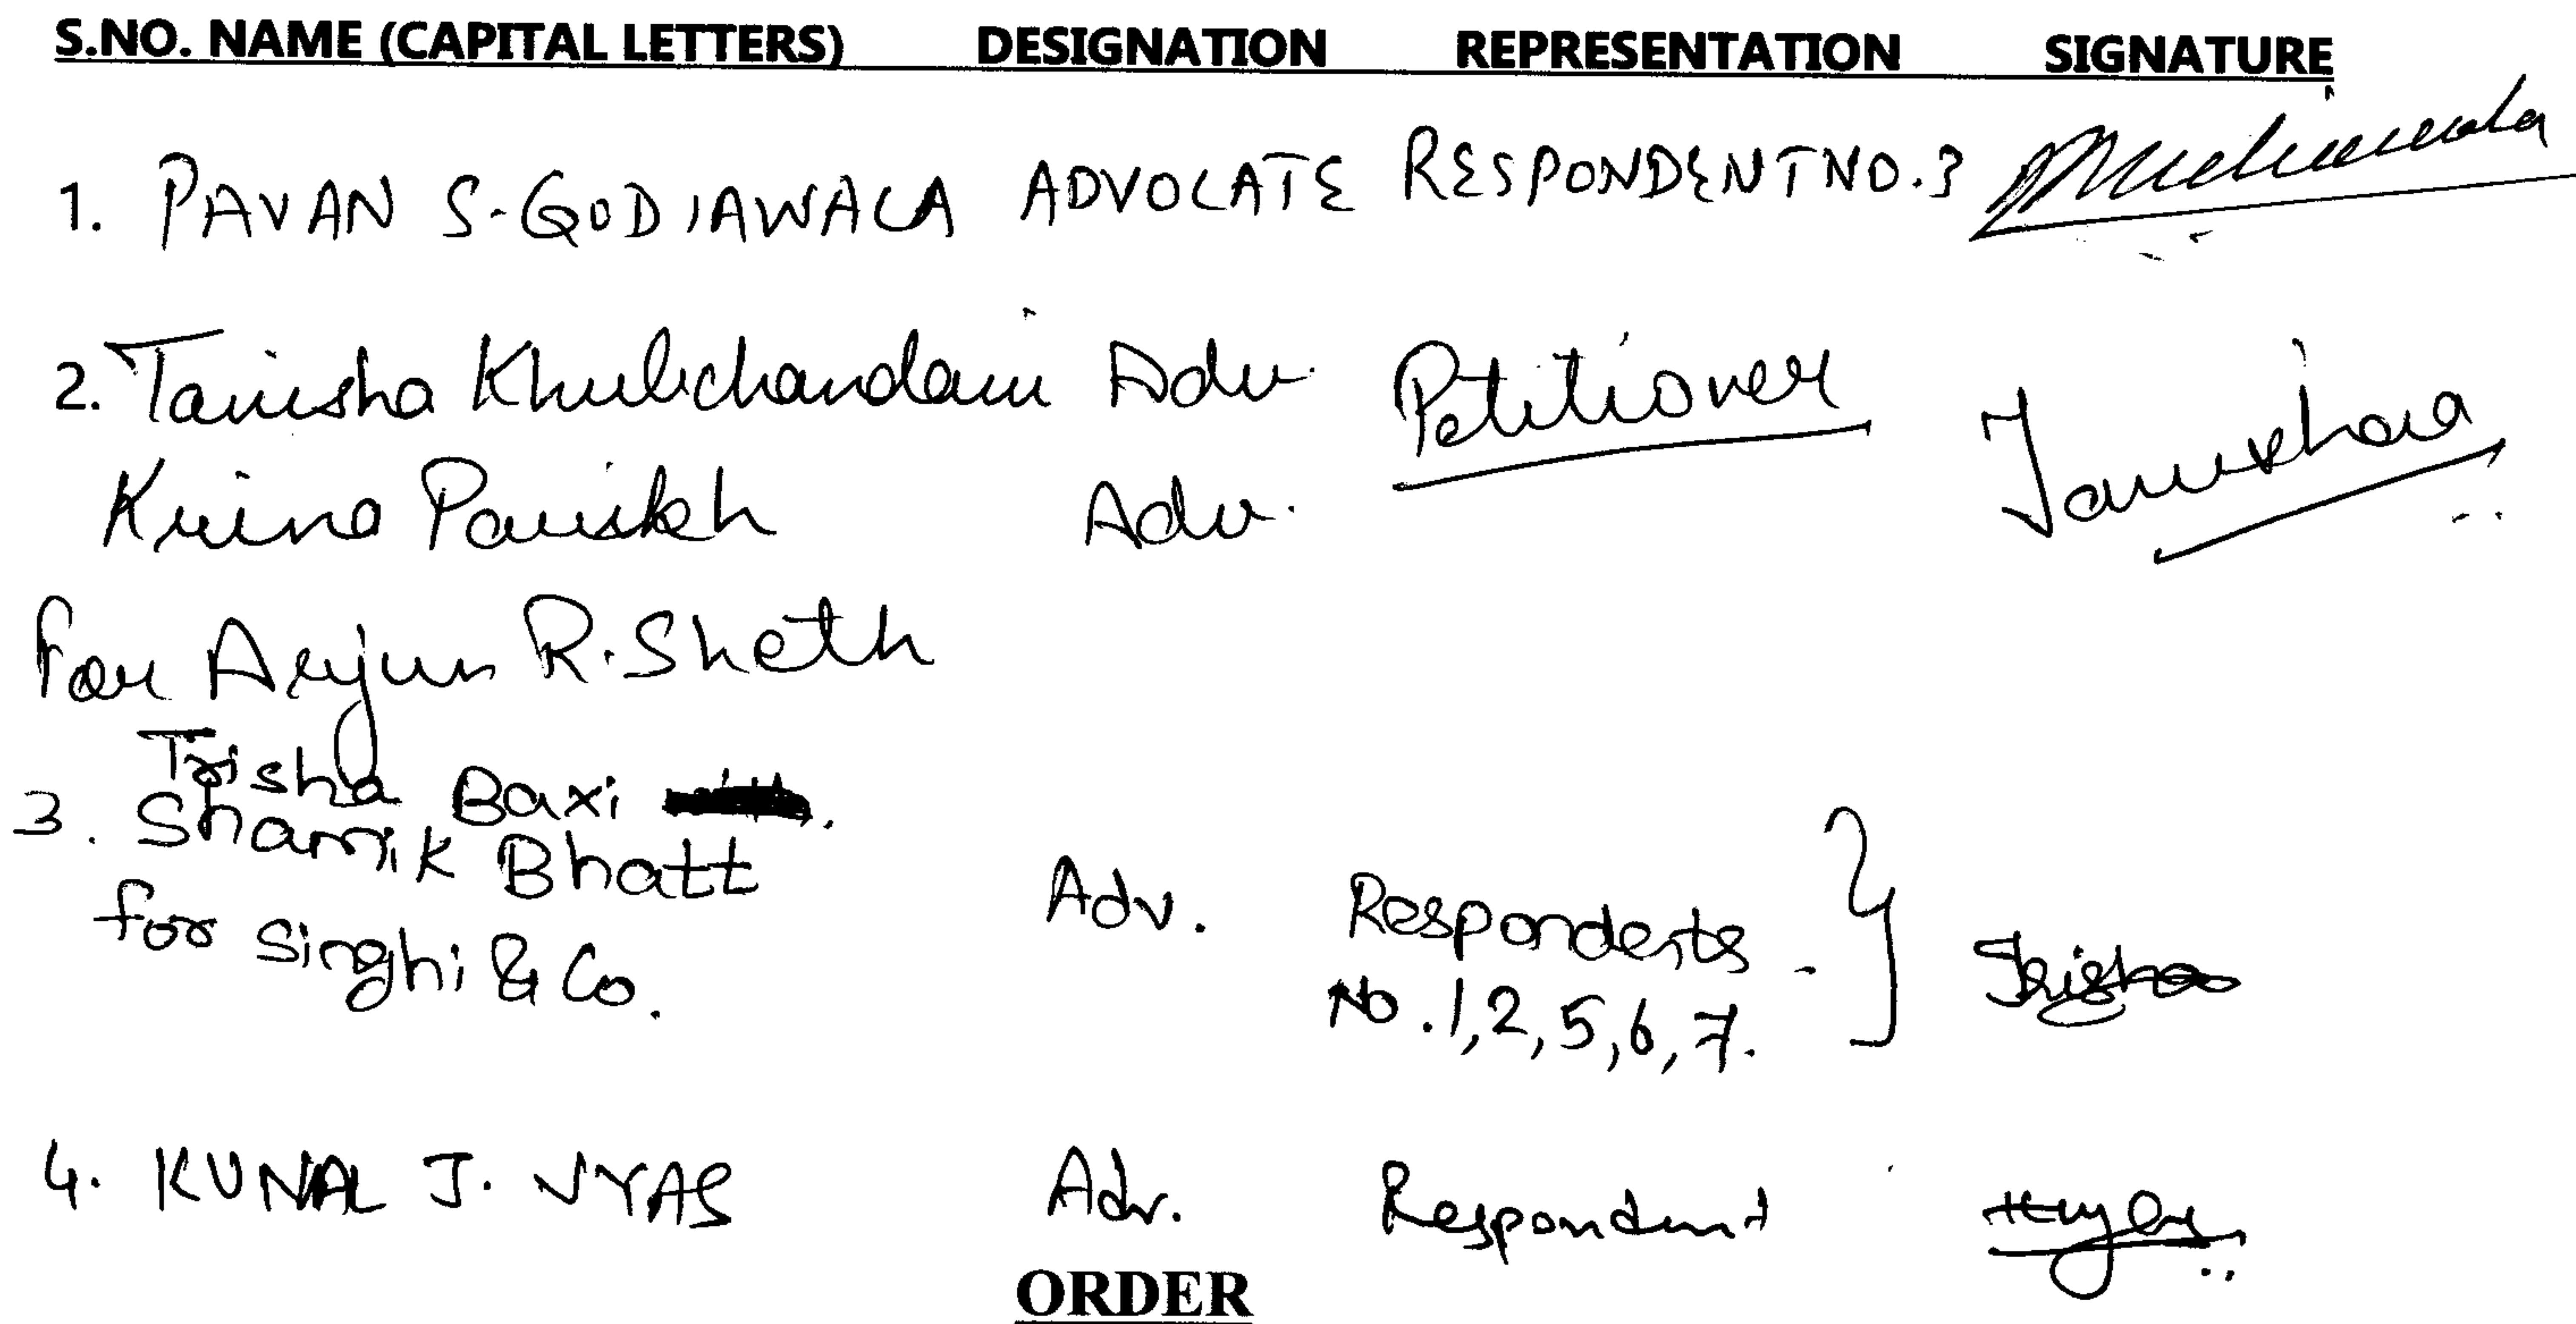 S.NO. NAME (CAPITAL LETTERS) DESIGNATION REPRESENTATION SIGNATURE
1. PAVAN S. GODIAWALA ADVOCATE RESPONDENT NO.3
2. Tanisha Khubchandani Adv. Petitioner Tanishaa
Krina Parikh Adv.
for Arjun R. Sheth
Trisha Baxi
3. Shamik Bhatt
for Singhi & Co. Adv. Respondents
No. 1, 2, 5, 6, 7. Trisha
4. KUNAL J. VYAS Adv. Respondent
ORDER